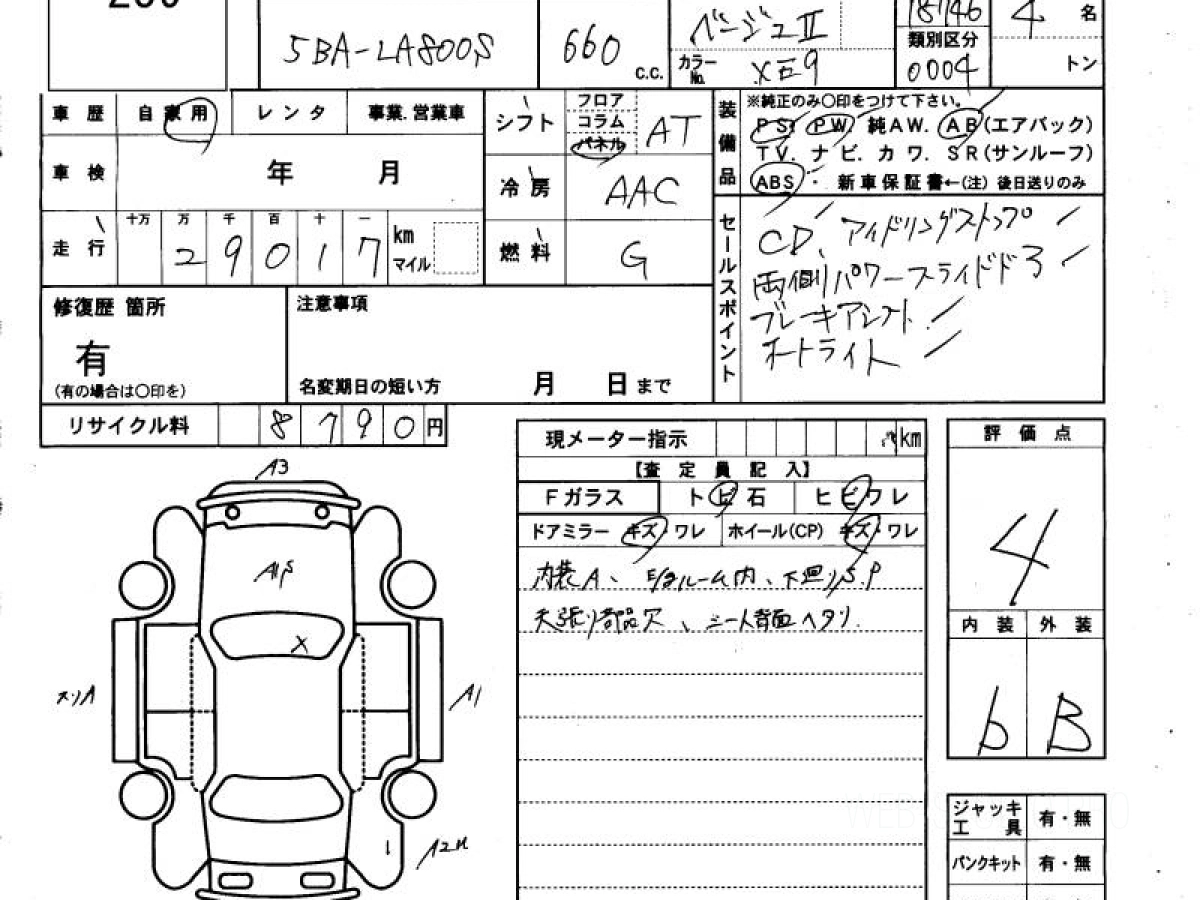 5BA-LA800S
660
c.c.
ベージュⅡ
カラーNo.
XE9
18746
類別区分
0004
4
名
トン
車歴
自家用
レンタ
事業.営業車
車検
年 月
走行
十万 万 千 百 十 一
29017
km
マイル
シフト
フロア
コラム
パネル
AT
冷房
AAC
燃料
G
装備品
※純正のみ〇印をつけて下さい。
PS. PW. 純AW. AB(エアバック)
TV. ナビ. カワ. SR(サンルーフ)
ABS・新車保証書←(注) 後日送りのみ
セールスポイント
CD、アイドリングストップ
両側パワースライドドア
ブレーキアシスト
オートライト
修復歴 箇所
有
(有の場合は〇印を)
注意事項
名変期日の短い方 月 日まで
リサイクル料
8790円
現メーター指示
km
【査定員記入】
Fガラス
トビ石
ヒビワレ
ドアミラー キズ・ワレ
ホイール(CP) キズ・ワレ
内装A、E/gルーム内、下廻りS.P
天張り部品欠、シート背面ヘタリ.
評価点
4
内装 外装
b B
A3
X
A1
ジャッキ工具 有・無
パンクキット 有・無